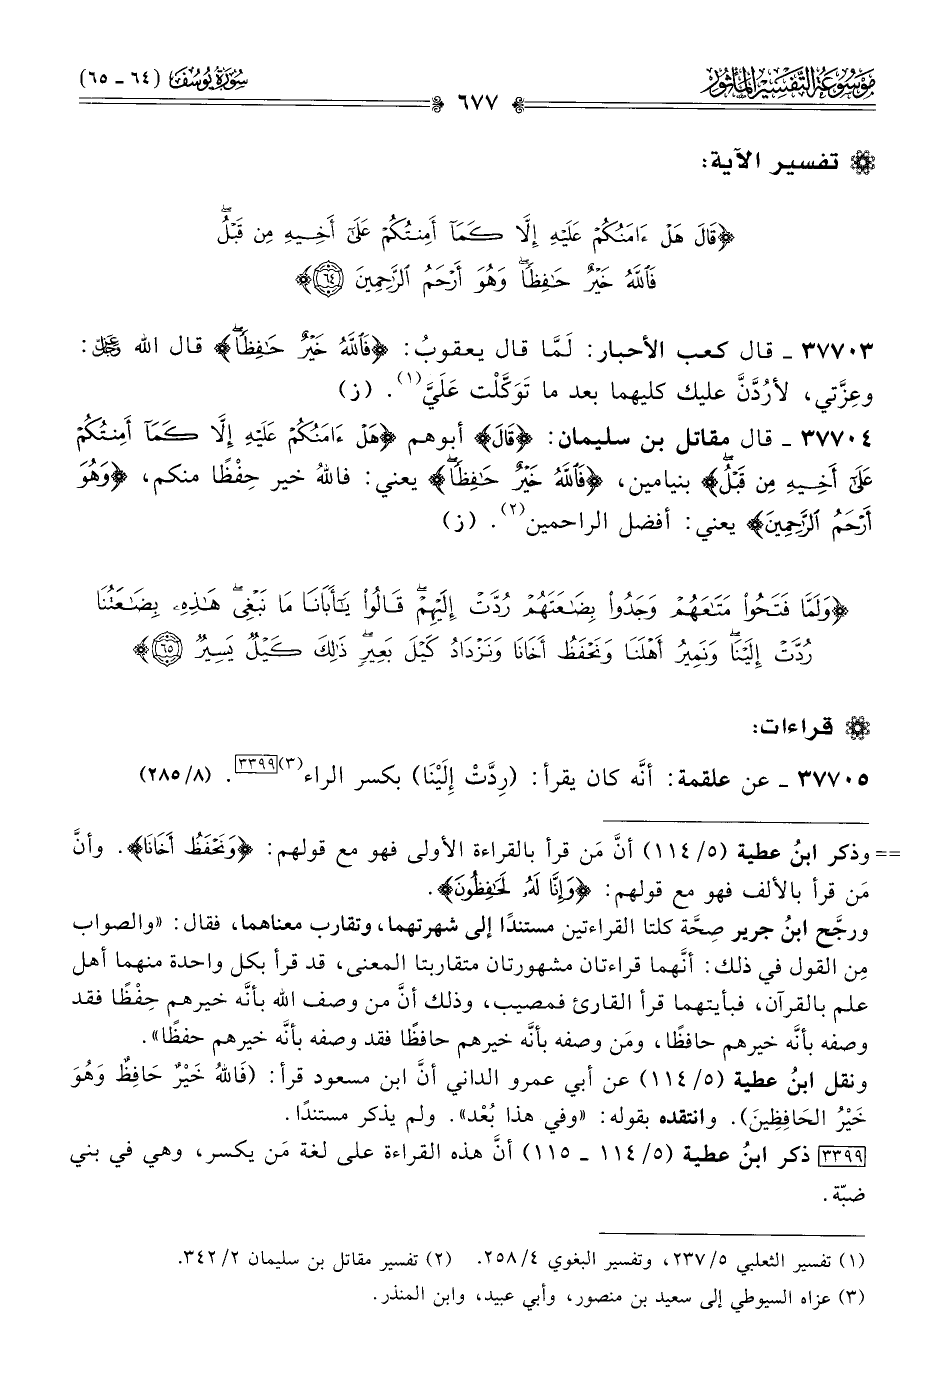 موسوعة التفسير المأثور
سورة يوسف (٦٤ ـ ٦٥)
٦٧٧
تفسير الآية:
﴿قَالَ هَلْ ءَامَنُكُمْ عَلَيْهِ إِلَّا كَمَآ أَمِنتُكُمْ عَلَىٰٓ أَخِيهِ مِن قَبْلُۖ
فَٱللَّهُ خَيْرٌ حَٰفِظًاۖ وَهُوَ أَرْحَمُ ٱلرَّٰحِمِينَ ٦٤﴾
٣٧٧٠٣ ـ قال كعب الأحبار: لَمَّا قال يعقوبُ: ﴿فَٱللَّهُ خَيْرٌ حَٰفِظًاۖ﴾ قال الله ﷿:
وعِزَّتي، لأرُدَّنَّ عليك كليهما بعد ما تَوَكَّلْت عَلَيَّ(١). (ز)
٣٧٧٠٤ ـ قال مقاتل بن سليمان: ﴿قَالَ﴾ أبوهم ﴿هَلْ ءَامَنُكُمْ عَلَيْهِ إِلَّا كَمَآ أَمِنتُكُمْ
عَلَىٰٓ أَخِيهِ مِن قَبْلُۖ﴾ بنيامين، ﴿فَٱللَّهُ خَيْرٌ حَٰفِظًاۖ﴾ يعني: فاللهُ خير حِفْظًا منكم، ﴿وَهُوَ
أَرْحَمُ ٱلرَّٰحِمِينَ﴾ يعني: أفضل الراحمين(٢). (ز)
﴿وَلَمَّا فَتَحُواْ مَتَٰعَهُمْ وَجَدُواْ بِضَٰعَتَهُمْ رُدَّتْ إِلَيْهِمْۖ قَالُواْ يَٰٓأَبَانَا مَا نَبْغِيۖ هَٰذِهِۦ بِضَٰعَتُنَا
رُدَّتْ إِلَيْنَاۖ وَنَمِيرُ أَهْلَنَا وَنَحْفَظُ أَخَانَا وَنَزْدَادُ كَيْلَ بَعِيرٖۖ ذَٰلِكَ كَيْلٌ يَسِيرٌ ٦٥﴾
قراءات:
٣٧٧٠٥ ـ عن علقمة: أنَّه كان يقرأ: (رِدَّتْ إِلَيْنَا) بكسر الراء(٣)[٣٣٩٩]. (٨/ ٢٨٥)
== وذكر ابنُ عطية (٥/ ١١٤) أنَّ مَن قرأ بالقراءة الأولى فهو مع قولهم: ﴿وَنَحْفَظُ أَخَانَا﴾. وأنَّ
مَن قرأ بالألف فهو مع قولهم: ﴿وَإِنَّا لَهُۥ لَحَٰفِظُونَ﴾.
ورجَّح ابنُ جرير صِحَّة كلتا القراءتين مستندًا إلى شهرتهما، وتقارب معناهما، فقال: «والصواب
مِن القول في ذلك: أنَّهما قراءتان مشهورتان متقاربتا المعنى، قد قرأ بكل واحدة منهما أهل
علم بالقرآن، فبأيتهما قرأ القارئ فمصيب، وذلك أنَّ من وصف الله بأنَّه خيرهم حِفْظًا فقد
وصفه بأنَّه خيرهم حافظًا، ومَن وصفه بأنَّه خيرهم حافظًا فقد وصفه بأنَّه خيرهم حفظًا».
ونقل ابنُ عطية (٥/ ١١٤) عن أبي عمرو الداني أنَّ ابن مسعود قرأ: (فَاللهُ خَيْرٌ حَافِظٌ وَهُوَ
خَيْرُ الحَافِظِينَ). وانتقده بقوله: «وفي هذا بُعْد». ولم يذكر مستندًا.
[٣٣٩٩] ذكر ابنُ عطية (٥/ ١١٤ ـ ١١٥) أنَّ هذه القراءة على لغة مَن يكسر، وهي في بني
ضبّة.
(١) تفسير الثعلبي ٥/ ٢٣٧، وتفسير البغوي ٤/ ٢٥٨. (٢) تفسير مقاتل بن سليمان ٢/ ٣٤٢.
(٣) عزاه السيوطي إلى سعيد بن منصور، وأبي عبيد، وابن المنذر.